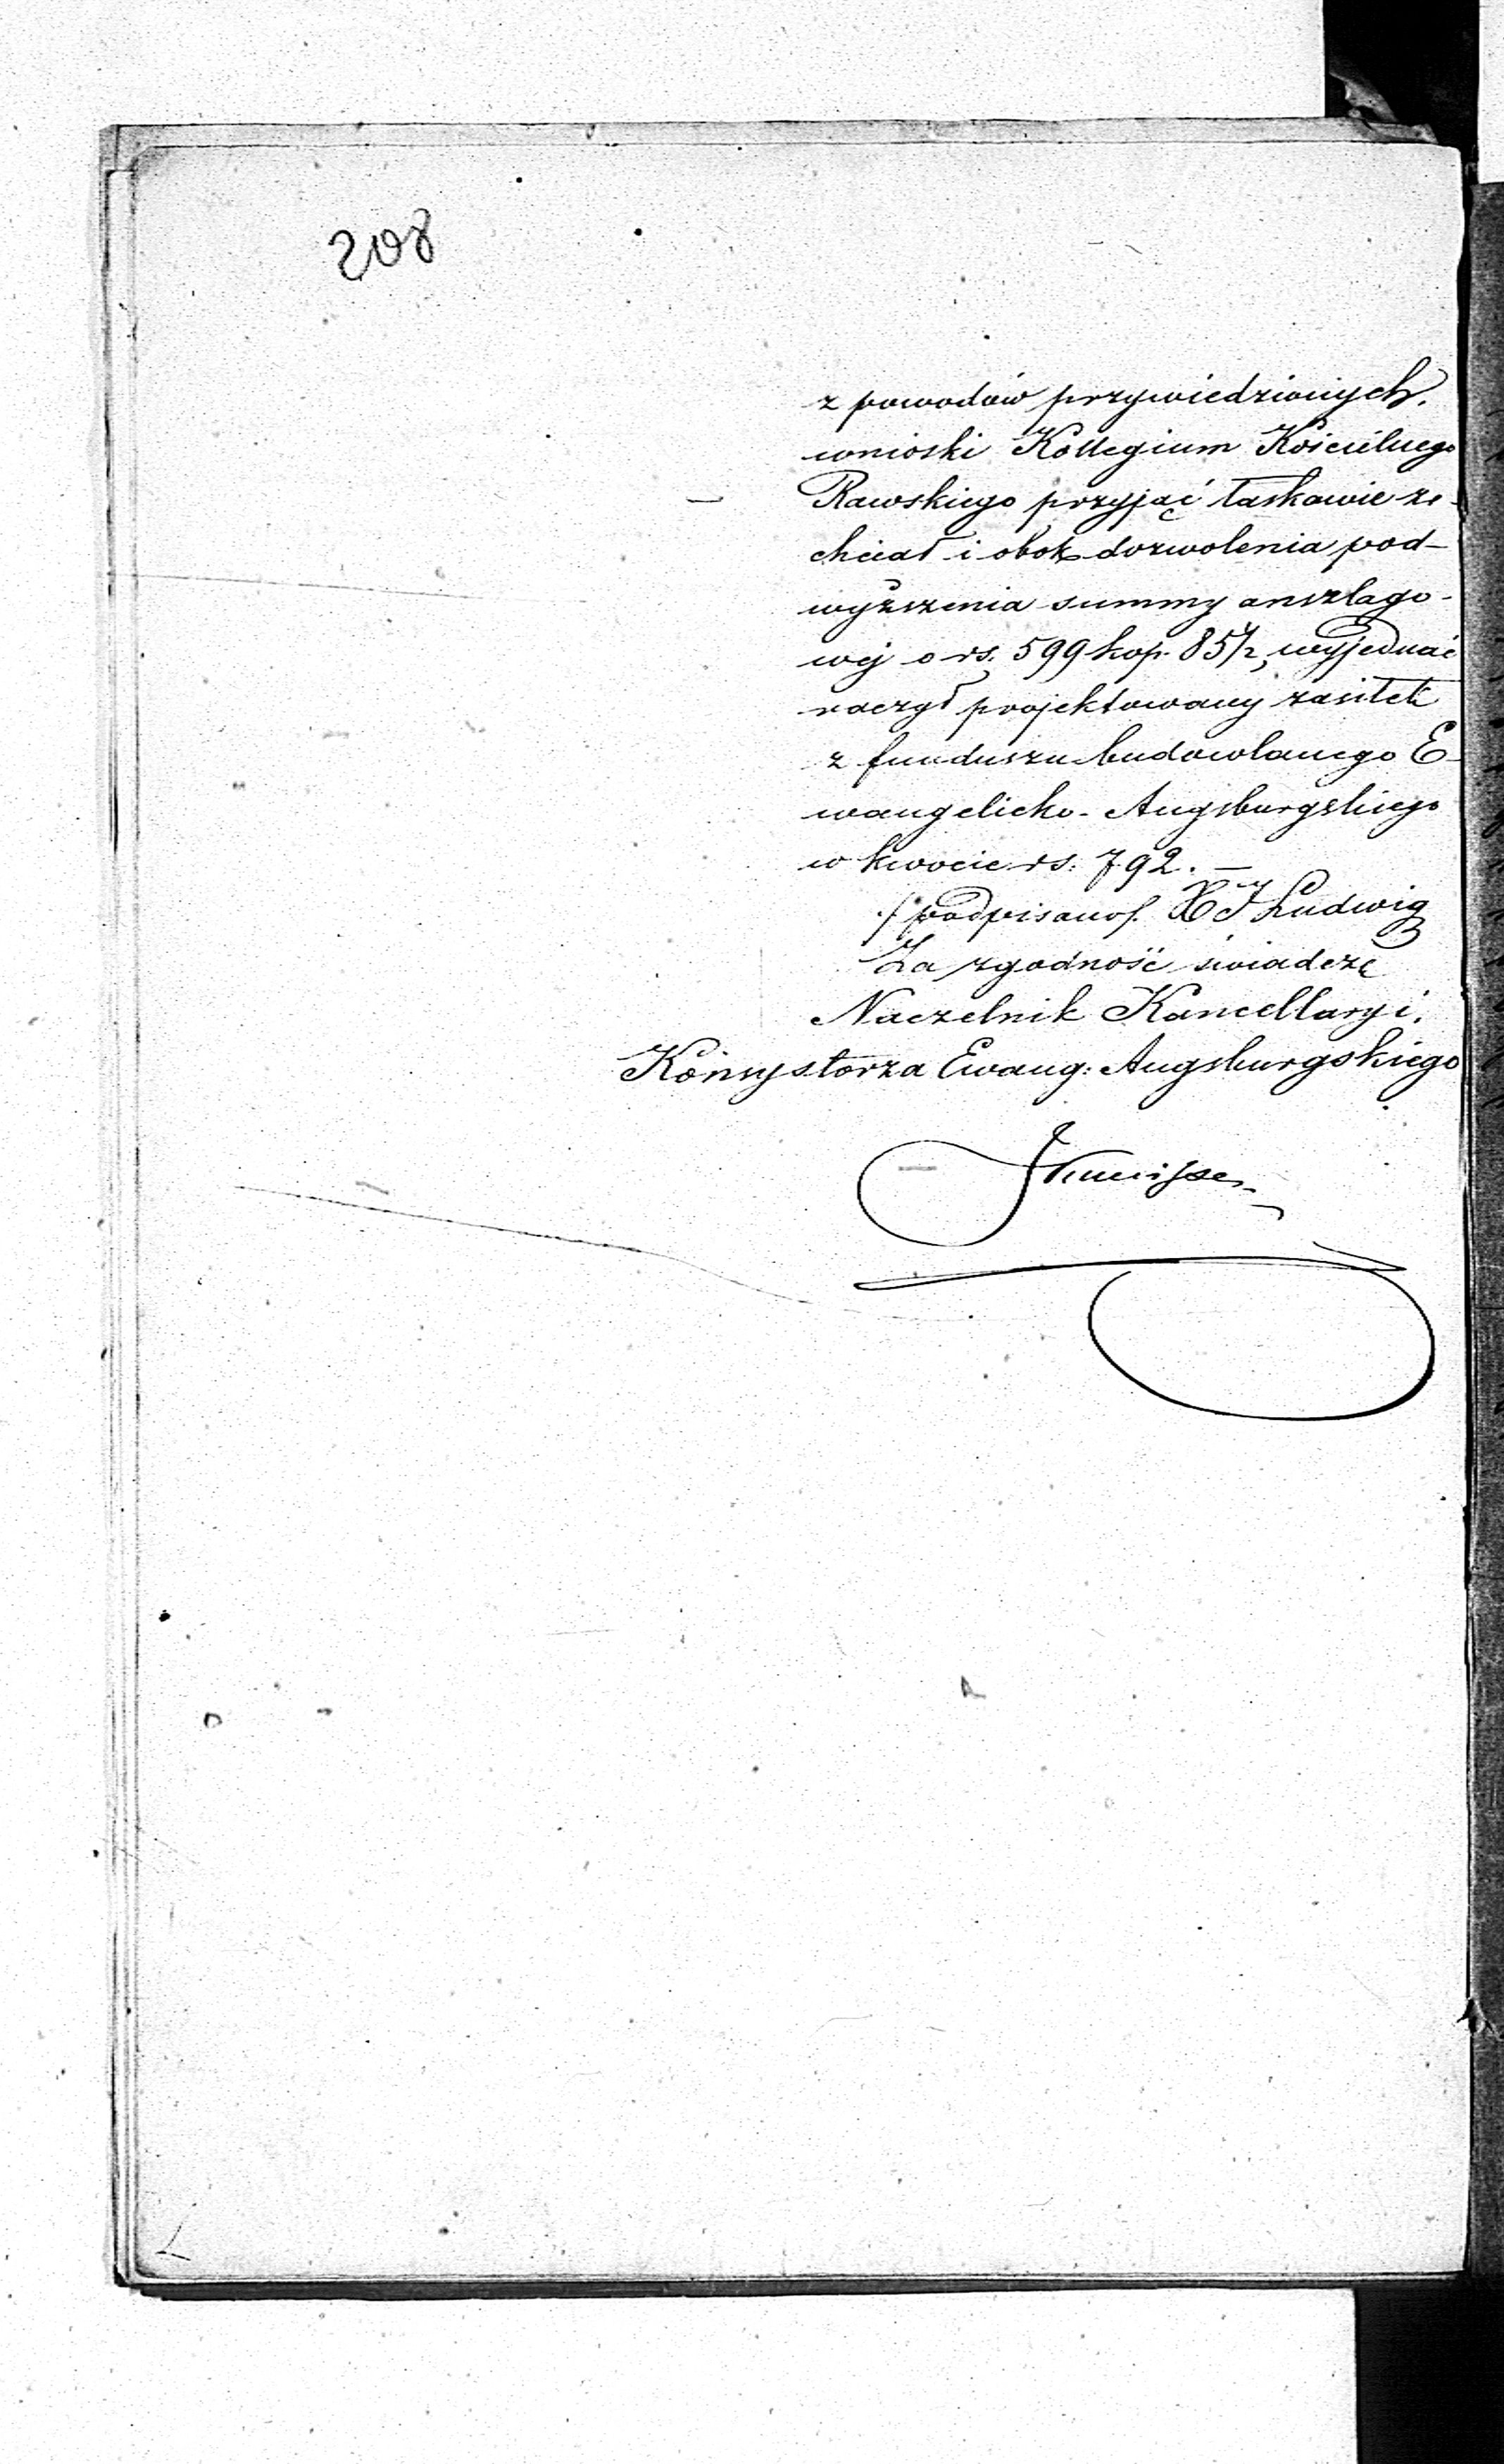 208
z powodów przywiedzionych,
wnioski Kollegium Kościelnego
Rawskiego przyjąć łaskawie ze-
chciał i obok dozwolenia pod-
wyższenia summy anszlago-
wej o rs. 599 kop. 85½, wyjednać
raczył projektowany zasiłek
z funduszu budowlanego E-
wangelicko-Augsburgskiego
w kwocie rs: 792. —
/podpisano/. Ludwig
Za zgodność świadczę
Naczelnik Kancellaryi.
Konsystorza Ewang: Augsburgskiego